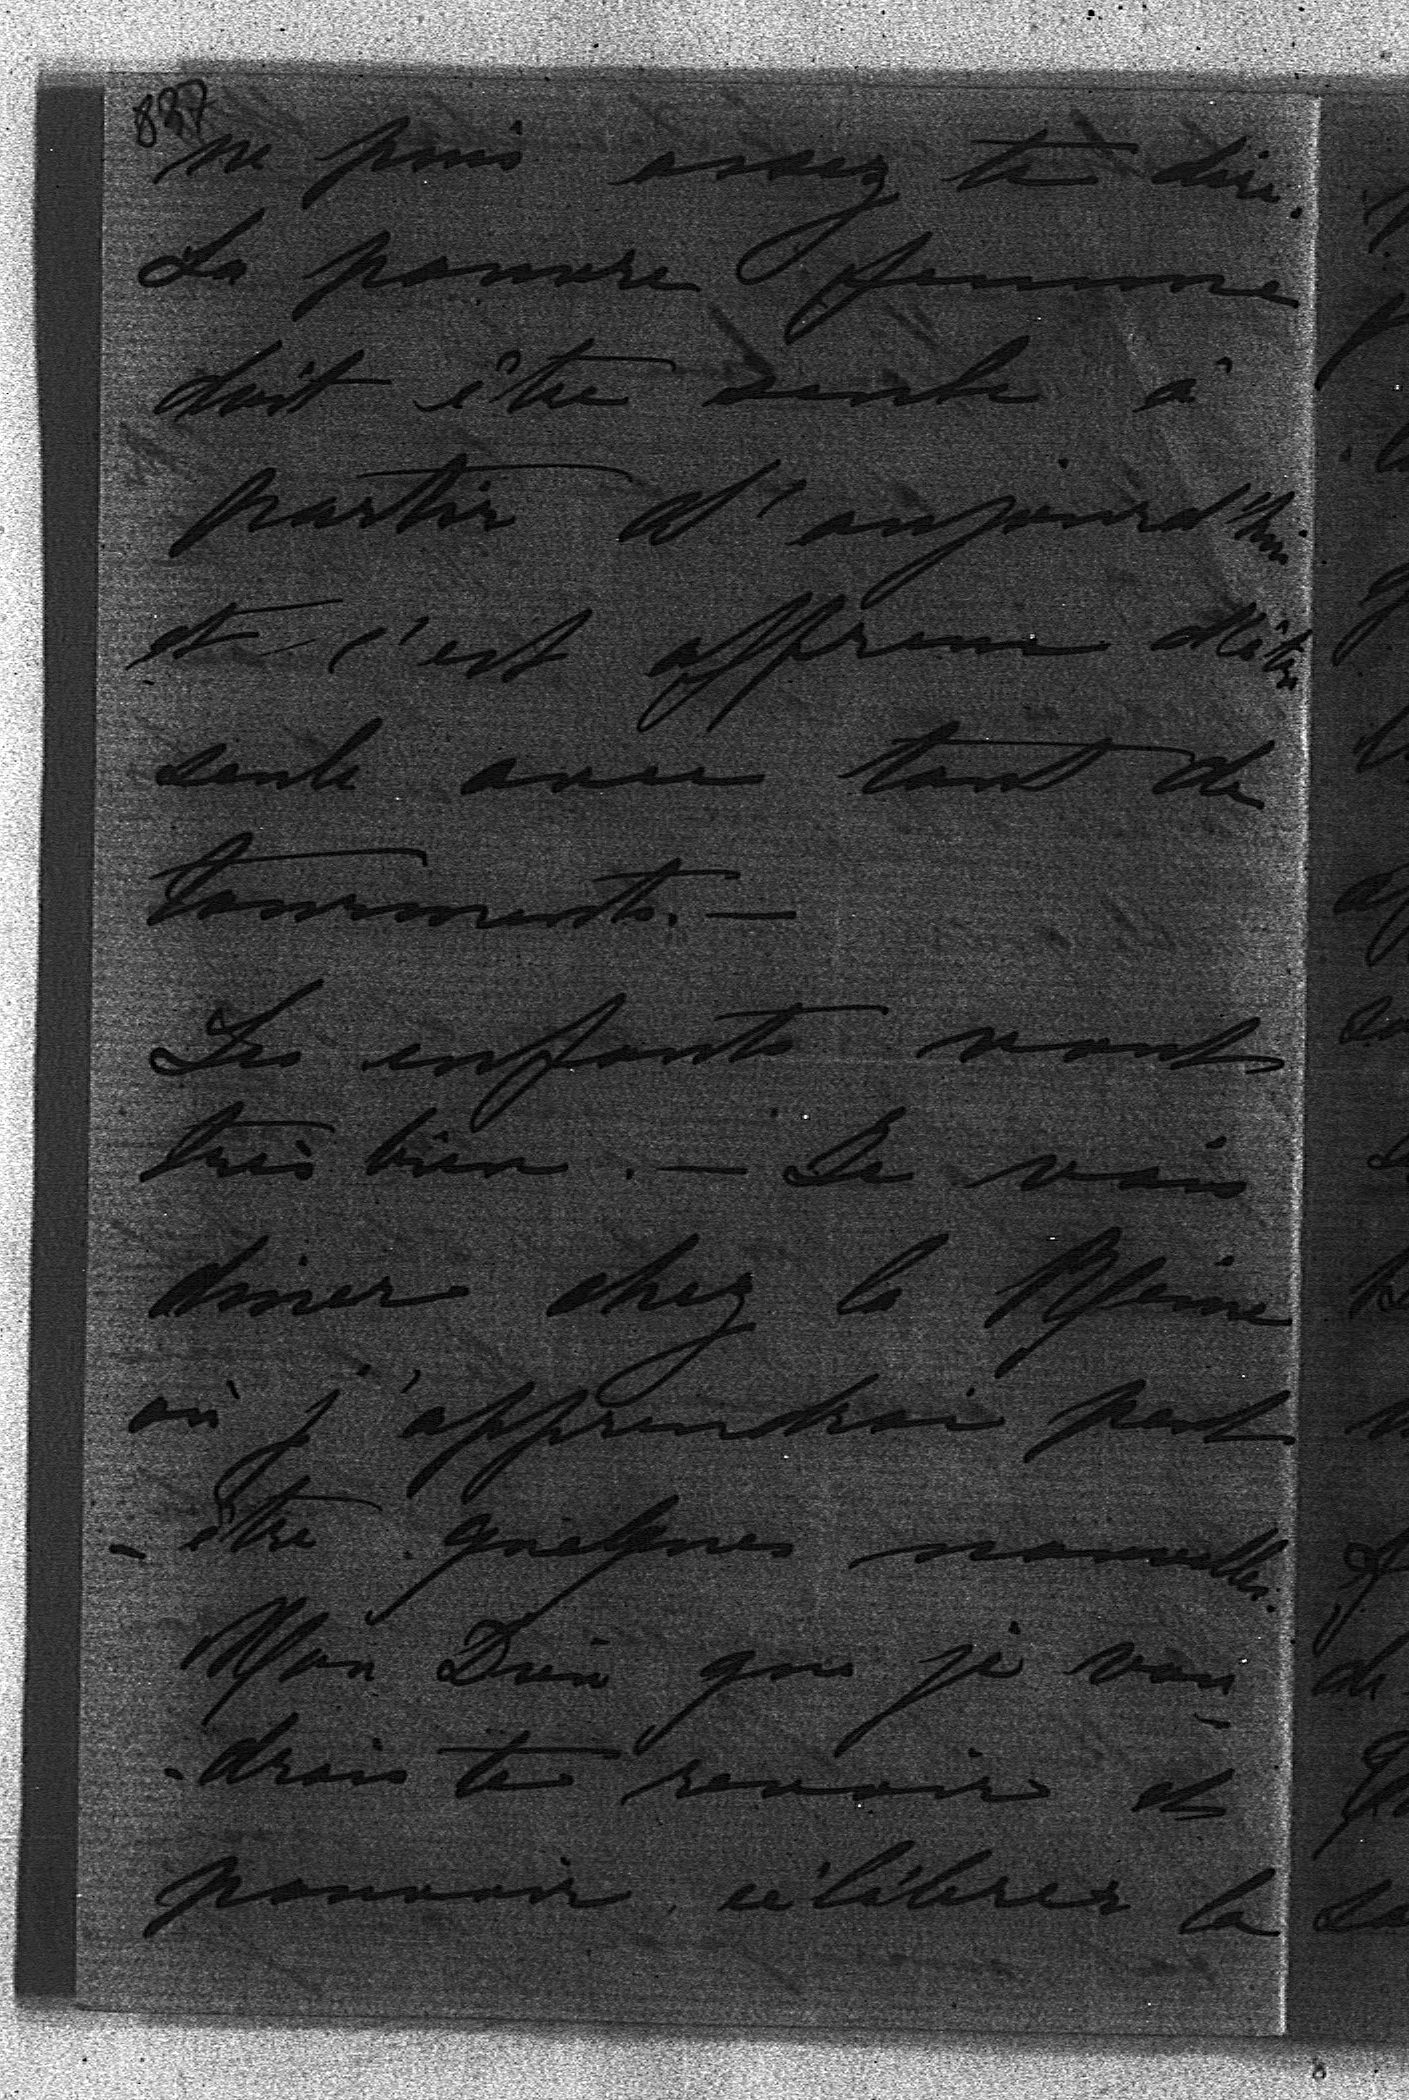 837
ne puis assez te dire.
La pauvre femme
doit être seule à
partir d'aujourd'hui
et c'est affreux d'être
seule avec tant de
tourments. —
Les enfants vont
très bien. — Je vais
diner chez la Reine
où j'apprendrai peut
- être quelques nouvelles.
Mon Dieu que je vou
-drais te revoir et
pouvoir célébrer la